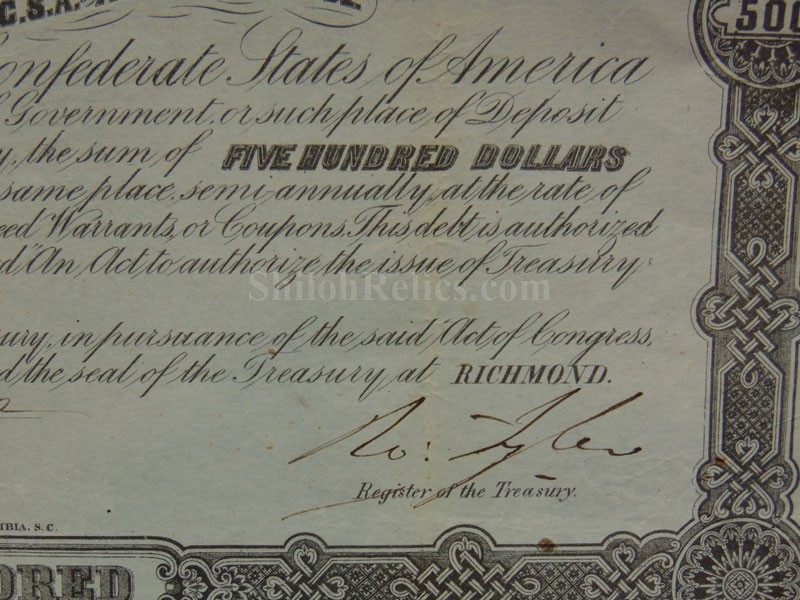 C.S.A.
500
onfederate States of America
Government, or such place of Deposit
y, the sum of FIVE HUNDRED DOLLARS
same place, semi-annually, at the rate of
eed Warrants, or Coupons. This debt is authorized
d "An Act to authorize the issue of Treasury
ShilohRelics.com
ury, in pursuance of the said Act of Congress,
d the seal of the Treasury, at RICHMOND.
Ro: Tyler
Register of the Treasury.
MBIA, S.C.
DRED